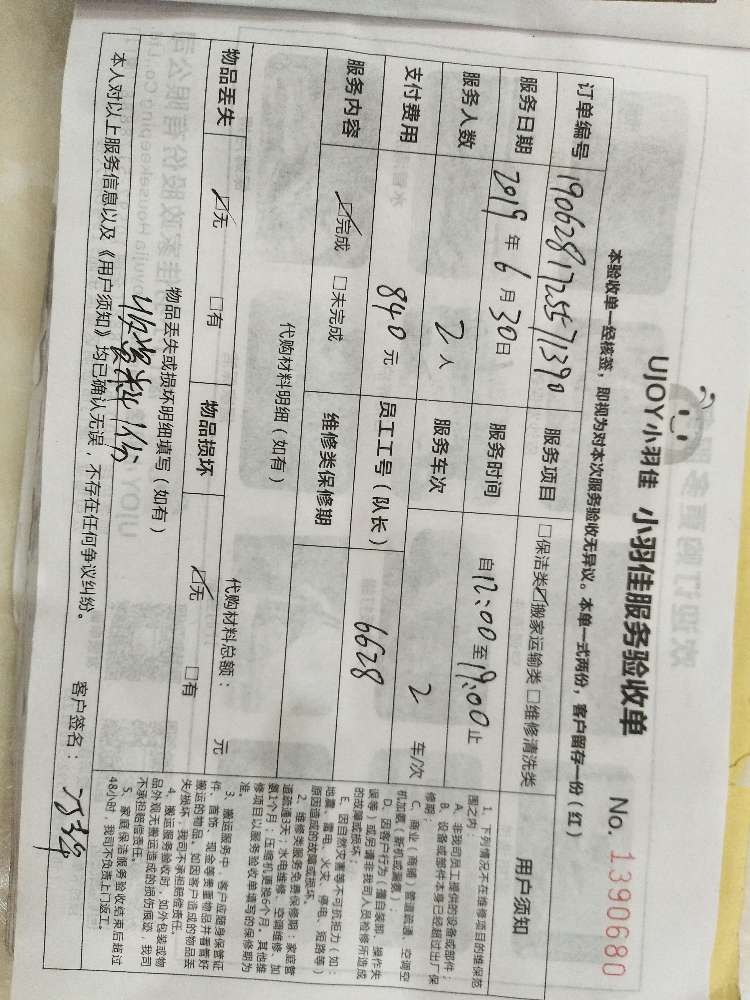 UJOY小羽佳 小羽佳服务验收单 No. 1390680
本验收单一经核签，即视为对本次服务验收无异议。本单一式两份，客户留存一份（红）
订单编号 1906281725571390 服务项目 □保洁类 ☑搬家运输类 □维修清洗类
服务日期 2019 年 6 月 30 日 服务时间 自 12:00 至 19:00 止
服务人数 2 人 服务车次 2 车/次
支付费用 840 元 员工工号（队长） 6628
服务内容 ☑完成 □未完成 维修类保修期
代购材料明细（如有） 代购材料总额： 元
物品丢失 ☑无 □有 物品损坏 ☑无 □有
物品丢失或损坏明细填写（如有）
本人对以上服务信息以及《用户须知》均已确认无误，不存在任何争议纠纷。 客户签名：
用户须知
1、下列情况不在维修项目的维保范
围之内：
A、非我司员工提供的设备或部件；
B、设备或部件本身已经超过出厂保
修期；
C、商业（商铺）管道疏通、空调空
机加氟（新机或漏氟）；
D、因客户行为（擅自装卸、操作失
误等）或另请非我司人员检修所造成
的故障或损坏；
E、因自然灾害等不可抗拒力（如：
地震、雷电、火灾、停电、短路等）
原因造成的故障或损坏。
2、维修类服务免费保修期：家庭管
道疏通3天；水电维修、空调维修、加
氟1个月；压缩机更换6个月。其他维
修项目以服务验收单填写的保修期为
准。
3、搬运服务中，客户应随身保管证
件、首饰、现金等贵重物品并看管好
搬运的物品，如因客户造成的物品丢
失/损坏，我司不承担赔偿责任。
4、搬运服务验收时，如外包装或物
品外观无搬运造成的损伤痕迹，我司
不承担赔偿责任。
5、家庭保洁服务验收结束后超过
48小时，我司不负责上门返工。